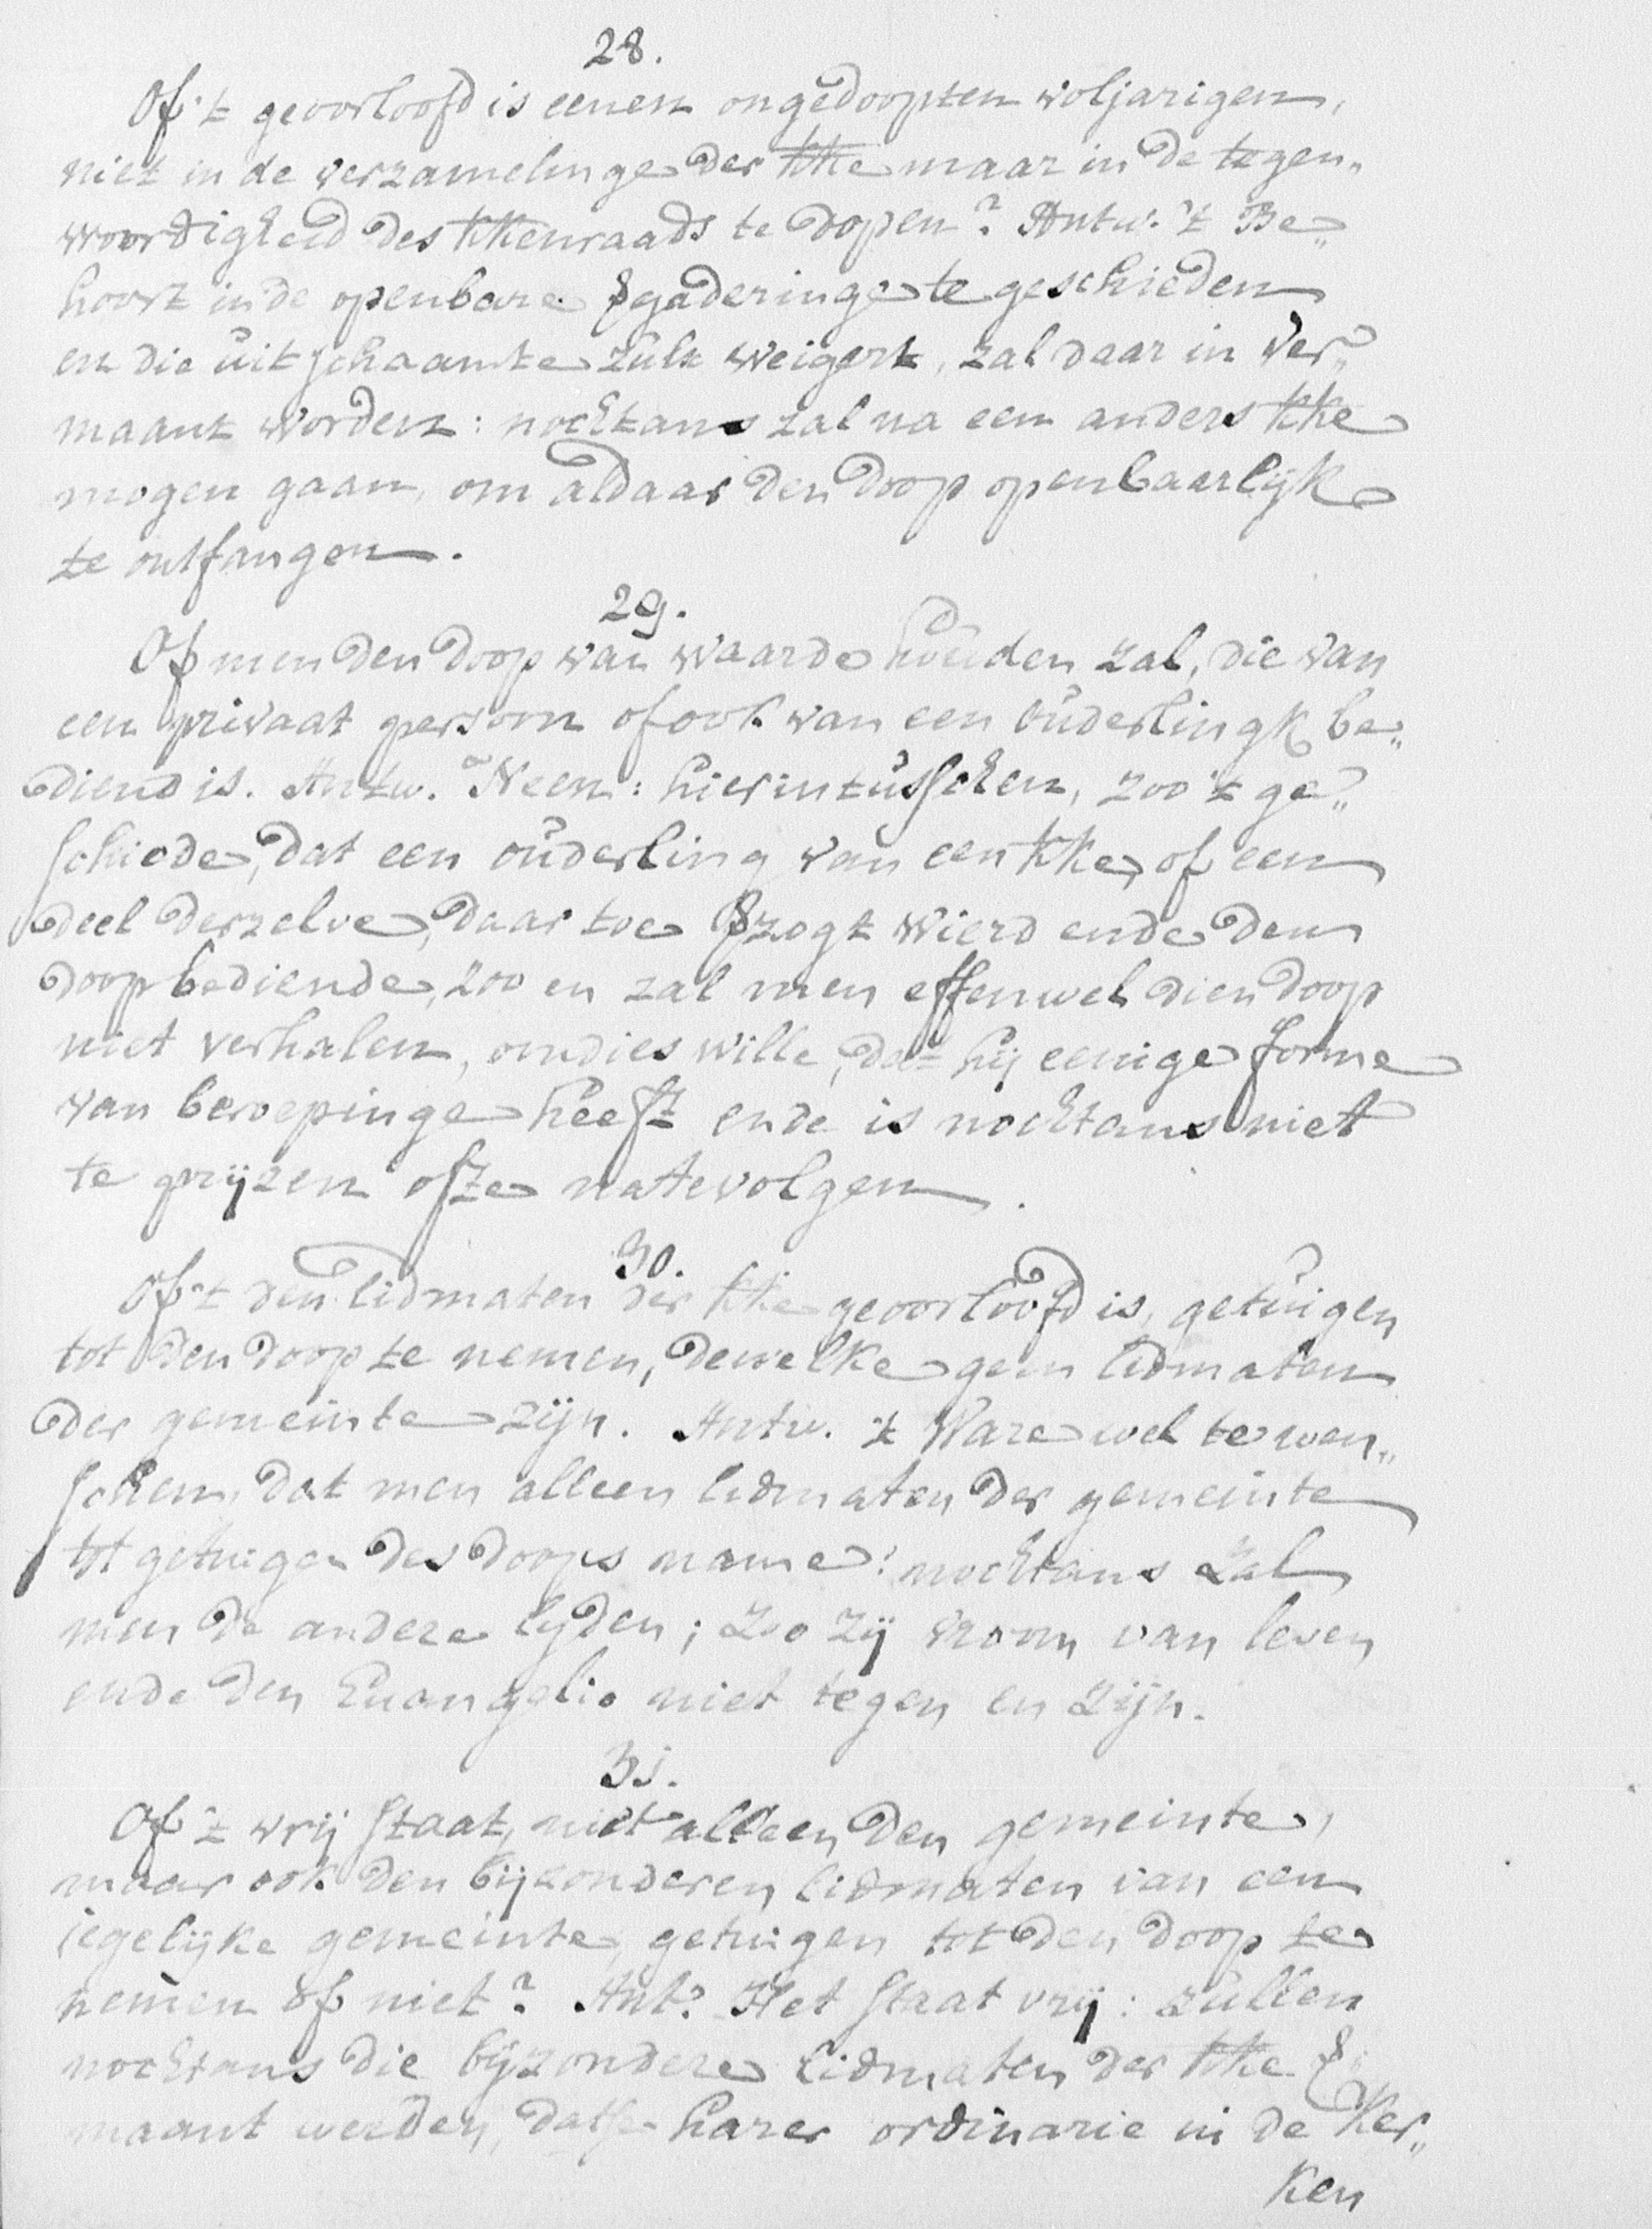 28.
Of 't geoorloofd is eenen ongedoopten voljarigen,
niet in de verzamelinge der kke maar in de tegen„
woordigheid des kkenraads te dopen? Antw. 't Be„
hoort in de openbare vgaderinge te geschieden
en die uit schaamte zulx weigert, zal daar in ver„
maant worden: nochtans zal na een anders kke
mogen gaan, om aldaar den doop openbaarlijk
te ontfangen.
29.
Of men den doop van waarde houden zal, die van
een privaat persoon of ook van een ouderlingk be„
diend is. Antw. Neen: hierintusschen, zoo 't ge„
schiede, dat een ouderling van een kke, of een
deel derzelve, daar toe vzogt wierd ende den
doop bediende, zoo en zal men effenwel dien doop
niet verhalen, omdies wille, dat hij eenige forme
van beroepinge heeft ende is nochtans niet
te prijzen ofte natevolgen.
30.
Of 't den lidmaten der kke geoorloofd is, getuigen
tot den doop te nemen, dewelke geen lidmaten
der gemeinte zijn. Antw. 't Ware wel te wen„
schen, dat men alleen lidmaten der gemeinte
tot getuigen des doops name: nochtans zal
men de andere lyden; zoo zij vroom van leven
ende den Euangelio niet tegen en zijn.
31.
Of 't vrij staat, niet alleen den gemeinte,
maar ook den bijzonderen lidmaten van een
iegelijke gemeinte, getuigen tot den doop te
nemen of niet? Ant? Het staat vrij: zullen
nochtans die bijzondere lidmaten der kke v„
maant werden, datse harer ordinarie in de Ker„
ken